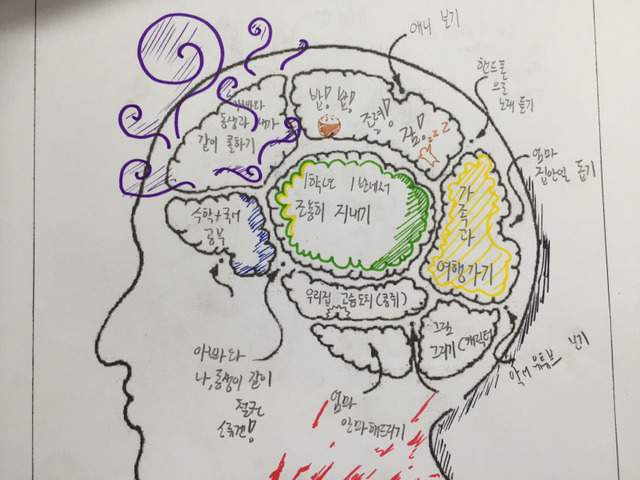 애니 보기
핸드폰
으로
노래 듣기
엄마
집안일 돕기
밥! 밥!
조력!
잠!
zzz
아빠와
동생과 내가
같이 롤하기
1학년 1반에서
조용히 지내기
가
족
과
여행가기
수학+국어
공부
우리집 고슴도치(콩쥐)
그림
그리기(캐릭터
아빠와
나, 동생이 같이
엄마
안마해드리기
유튜브 보기